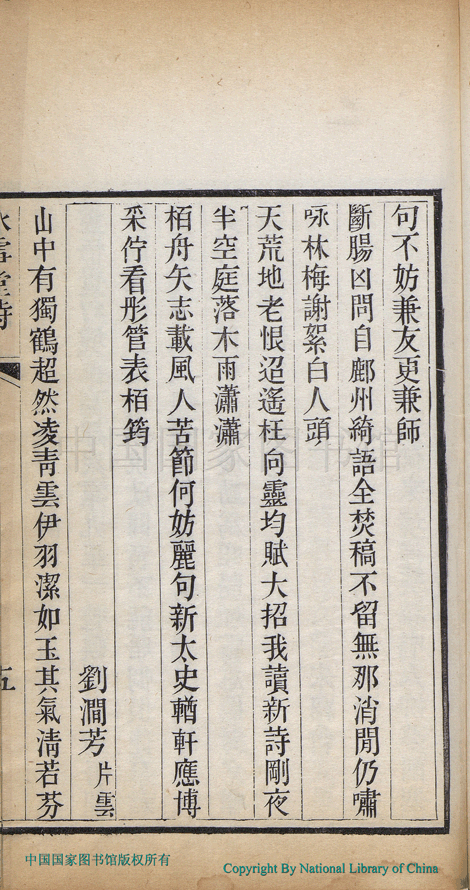 句不妨兼友更兼師
斷腸凶問自鄜州綺語全焚稿不留無那消閒仍嘯
咏林梅謝絮白人頭
天荒地老恨迢遙枉向靈均賦大招我讀新詩剛夜
半空庭落木雨瀟瀟
栢舟矢志載風人苦節何妨麗句新太史輶軒應博
采佇看彤管表栢筠
劉澗芳片雲
山中有獨鶴超然凌靑雲伊羽潔如玉其氣淸若芬
堂詩
五
中国国家图书馆
中国国家图书馆版权所有
Copyright By National Library of China